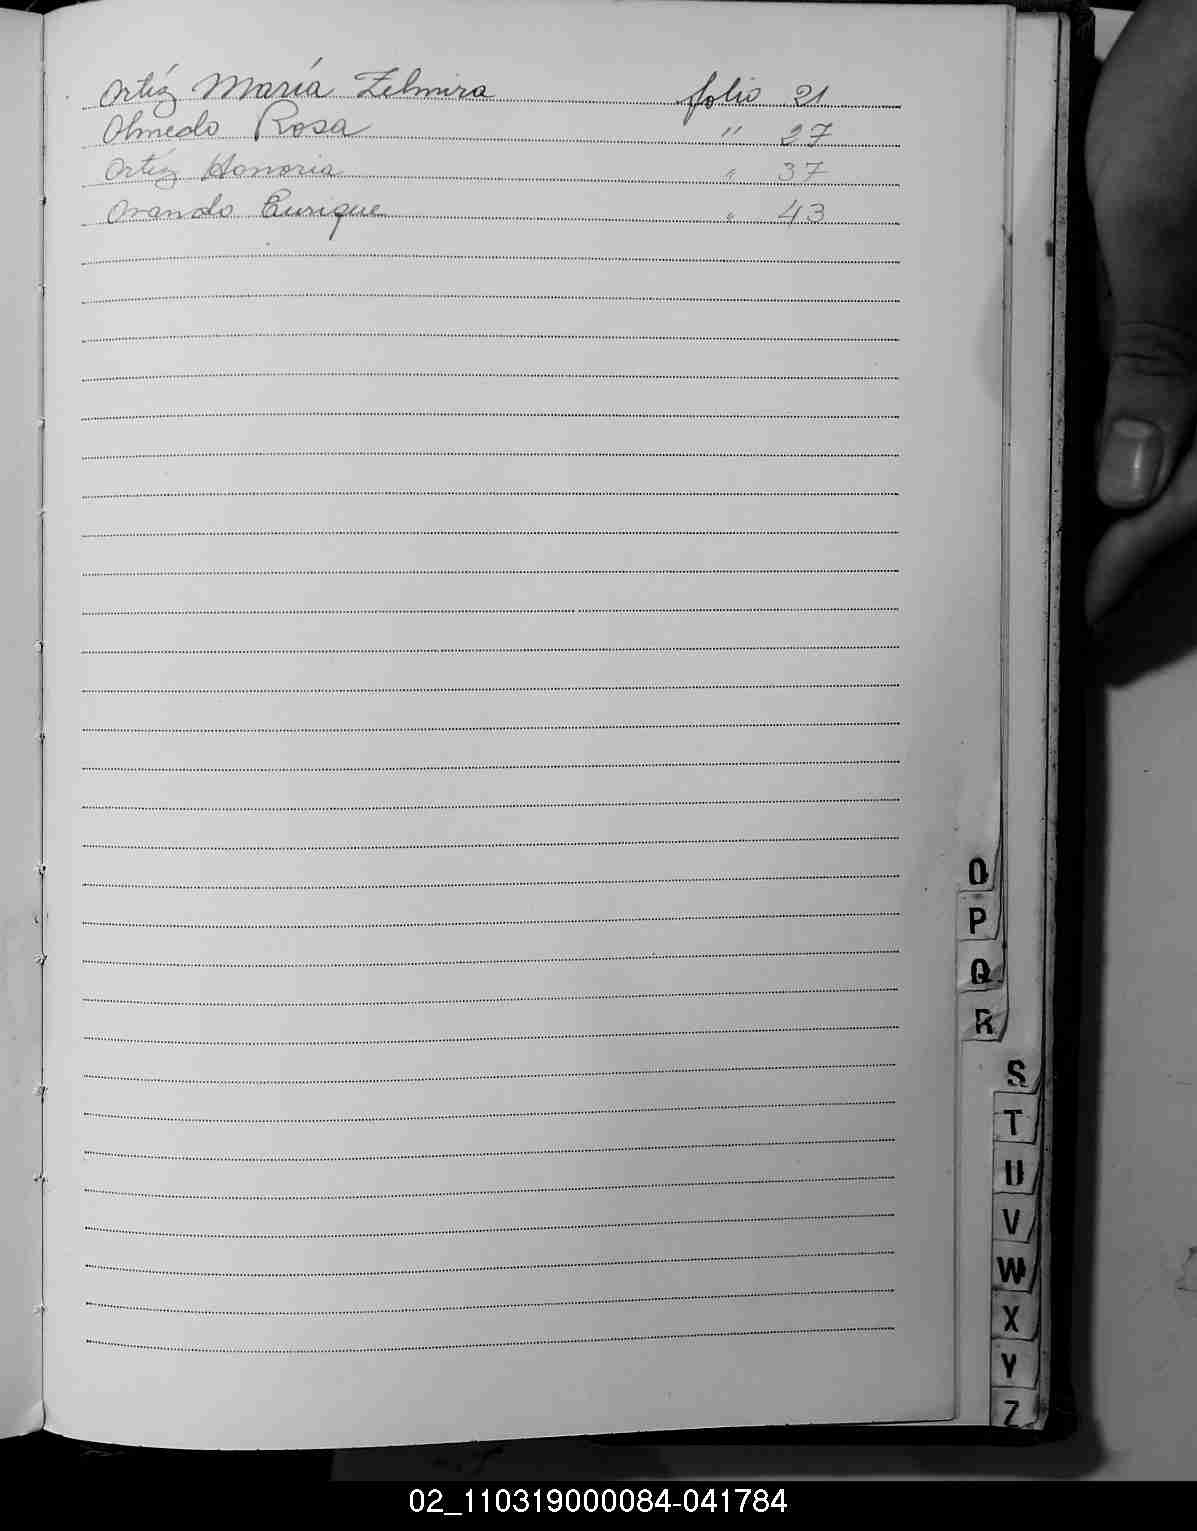 Ortíz María Zelmira folio 21
Olmedo Rosa " 27
Ortíz Honoria " 37
Ovando Enrique " 43
O
P
Q
R
S
T
U
V
W
X
Y
Z
02_110319000084-041784